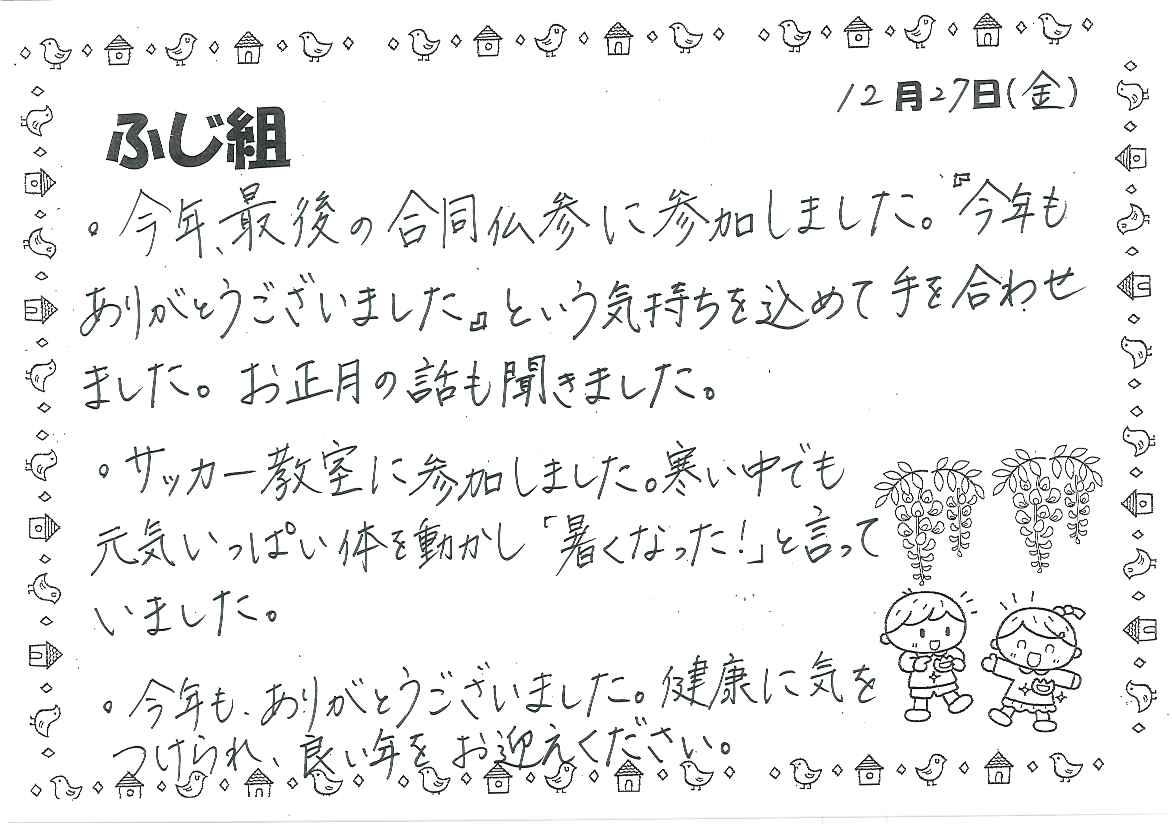 12月27日(金)
ふじ組
。今年、最後の合同仏参に参加しました。『今年も
ありがとうございました』という気持ちを込めて手を合わせ
ました。お正月の話も聞きました。
。サッカー教室に参加しました。寒い中でも
元気いっぱい体を動かし「暑くなった!」と言って
いました。
。今年も、ありがとうございました。健康に気を
つけられ、良い年をお迎えください。